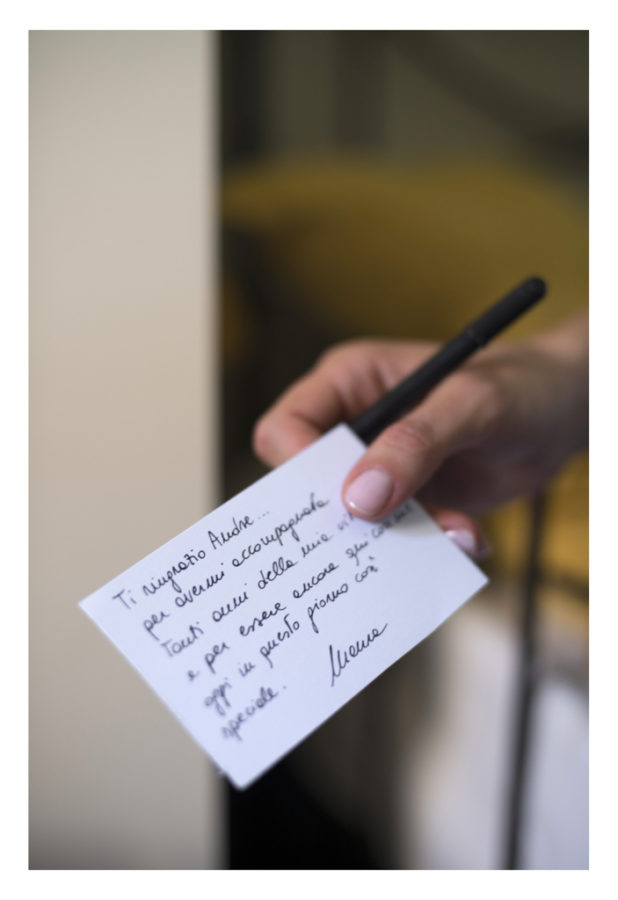 Ti ringrazio Andre...
per avermi accompagnata
tanti anni della mia
e per essere ancora qui con me
oggi in questo giorno così
speciale.